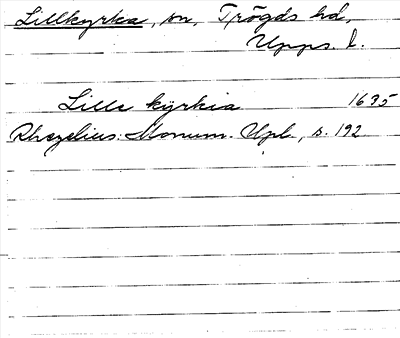 Lillkyrka, sn, Trögds hd,
Upps. l.
Lille kyrkia 1635
Rhezelius: Monum. Upl., s. 192